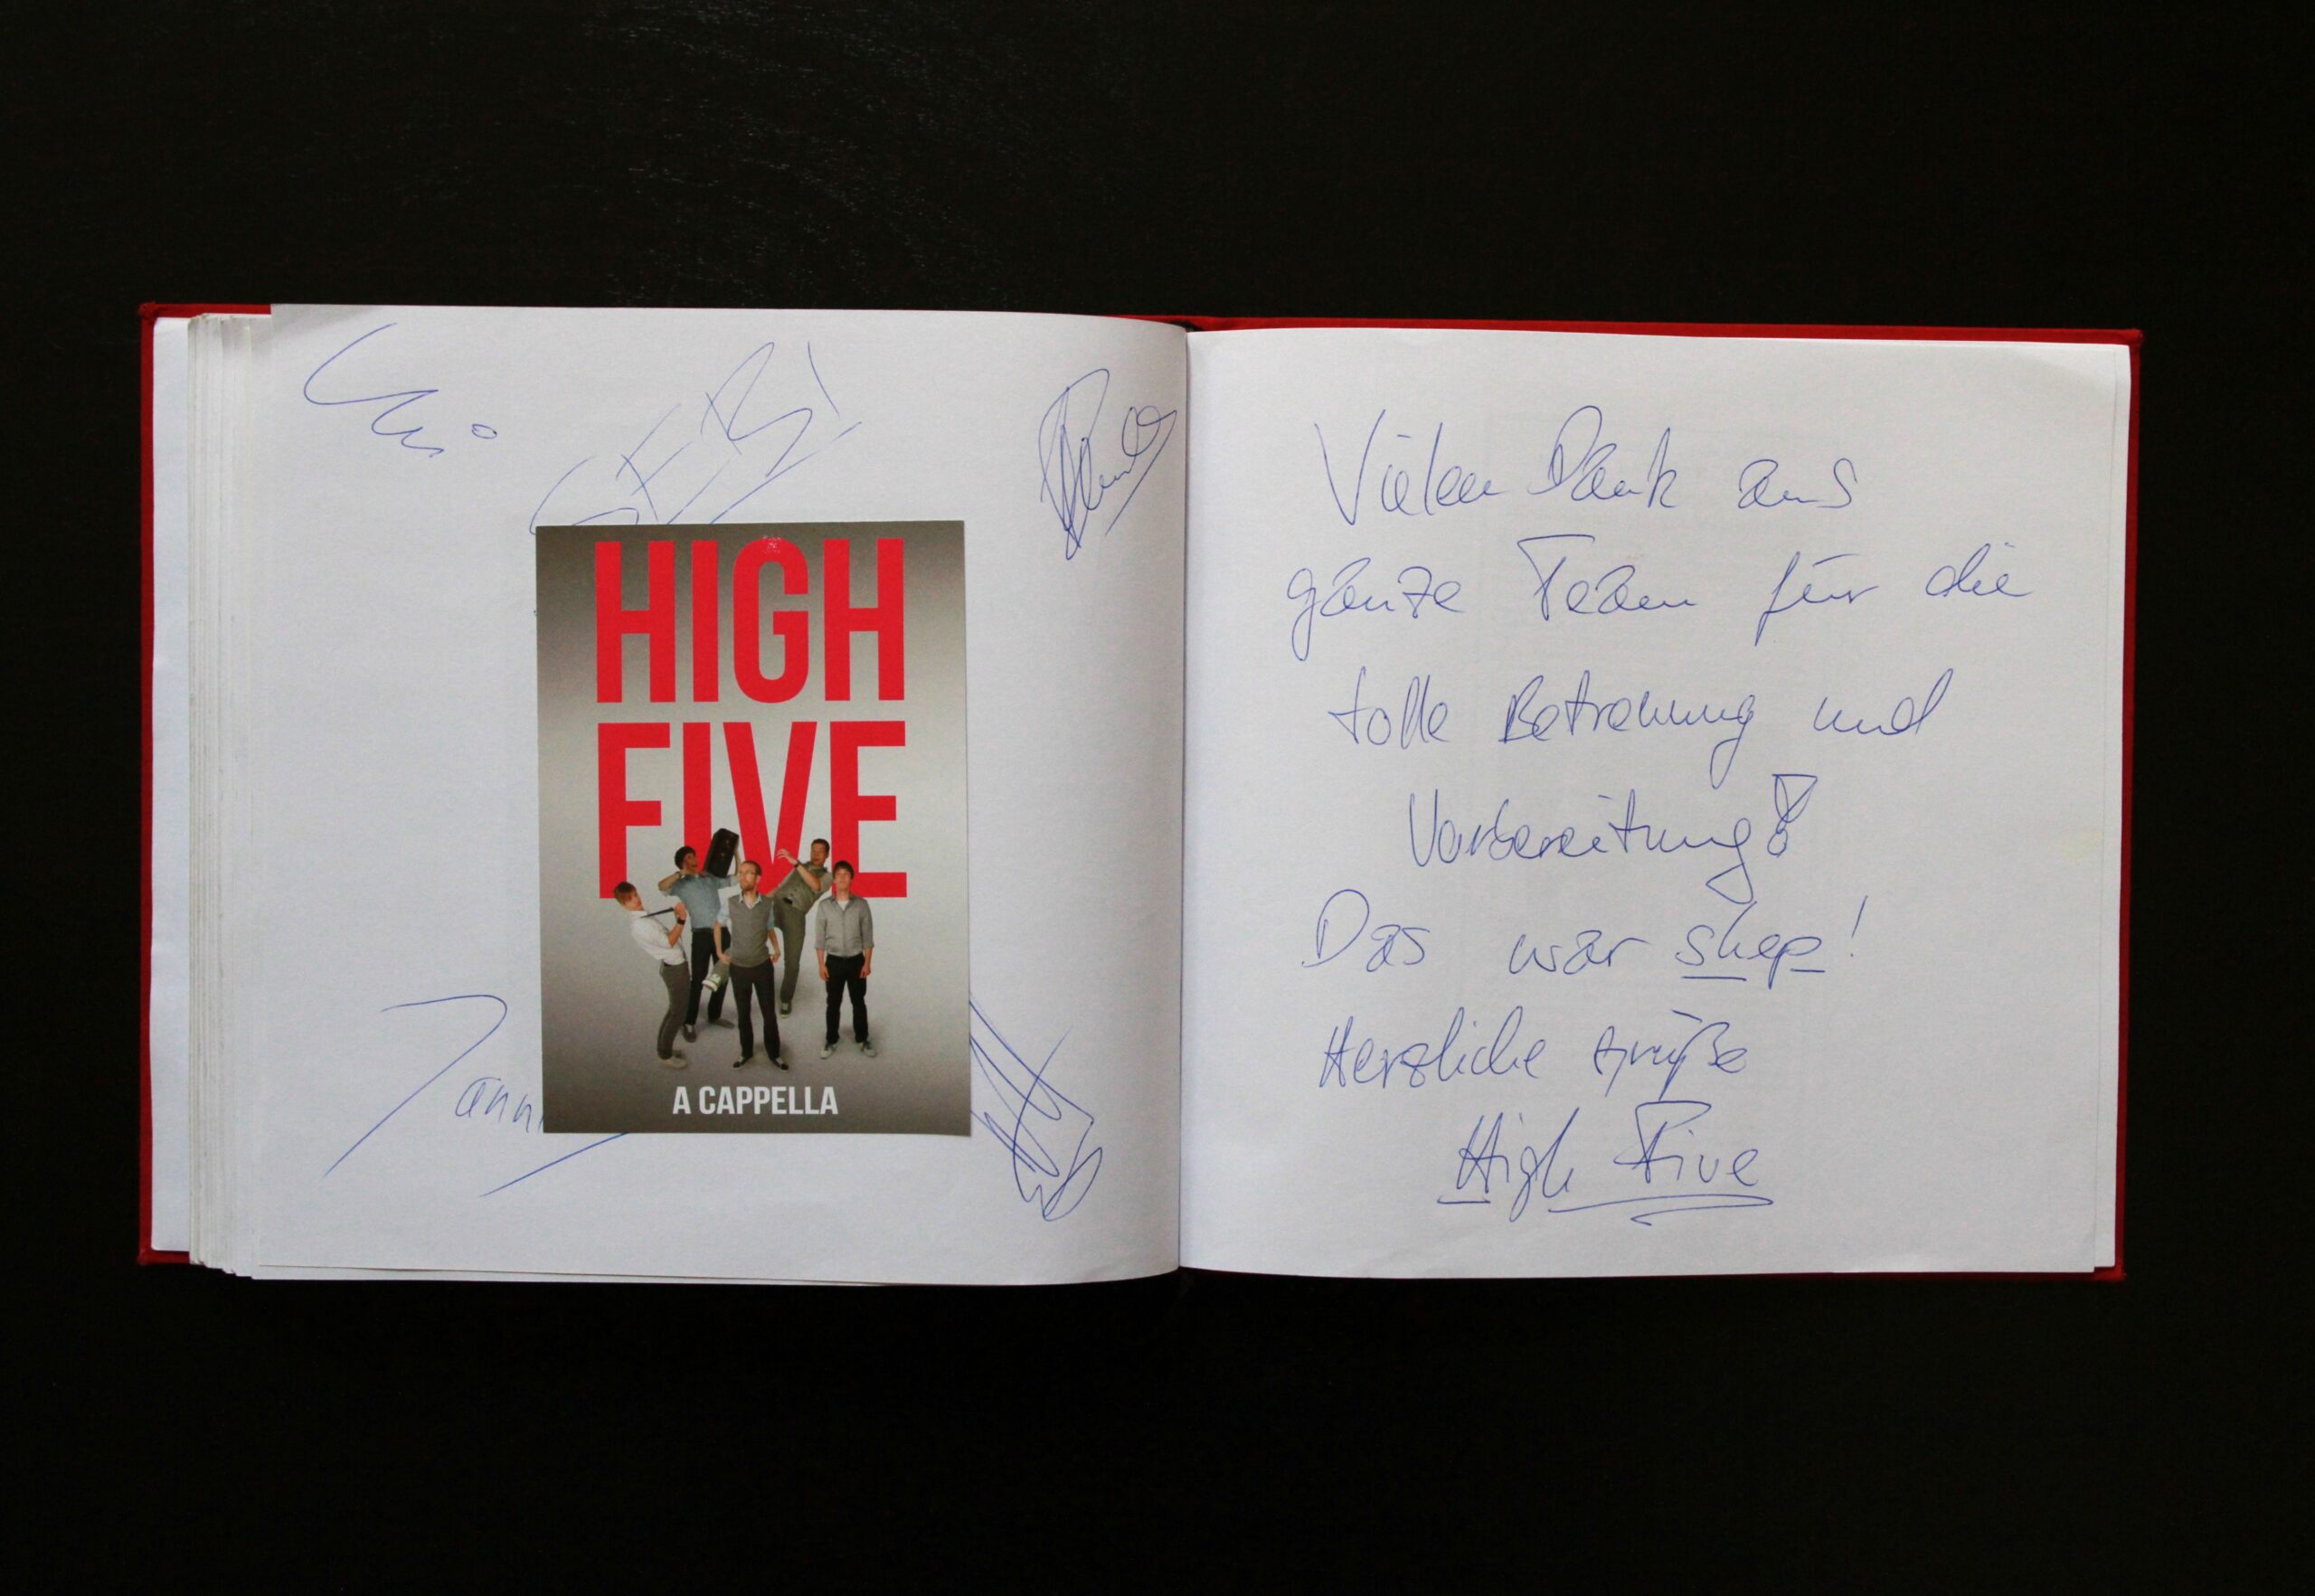 SEBI
HIGH
FIVE
A CAPPELLA
Vielen Dank ans
ganze Team für die
tolle Betreuung und
Vorbereitung!
Das war
Herzliche Grüße
High Five